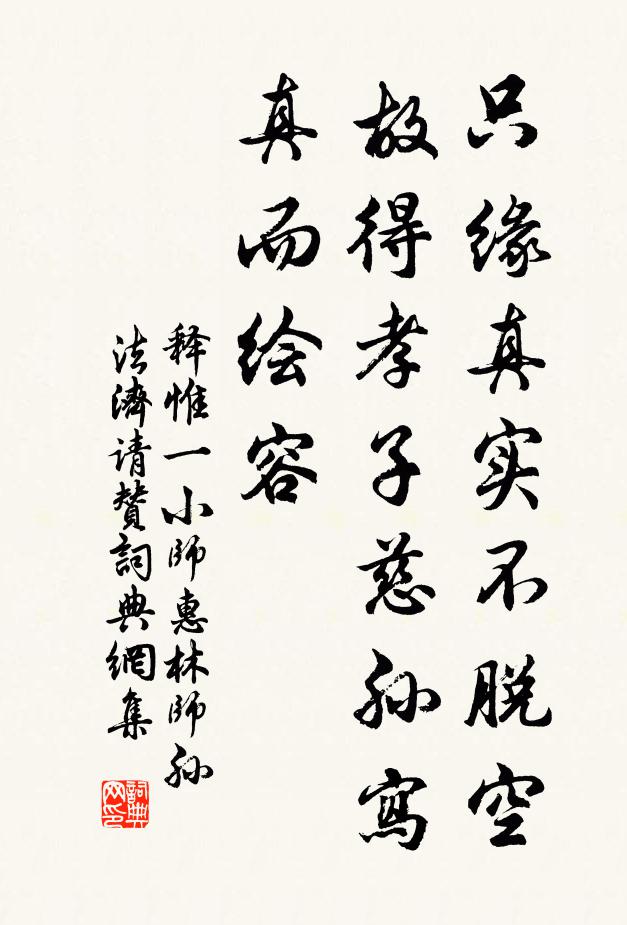 只缘真实不脱空
故得孝子慈孙寫
真而绘容
释惟一小師惠林師孙
法濟请赞詞典網集
詞典
网印